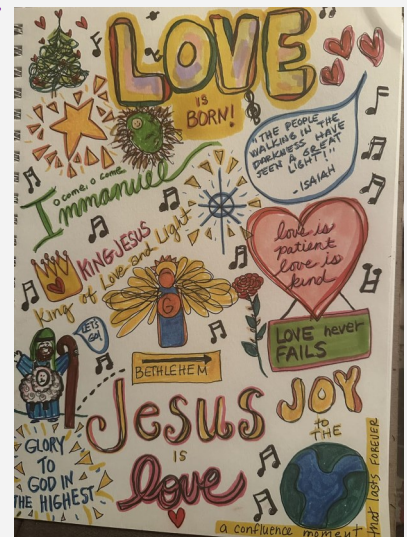 LOVE
IS
BORN!
"THE PEOPLE
WALKING IN THE
DARKNESS HAVE
SEEN A GREAT
LIGHT!"
ISAIAH
o come, o come
Immanuel
KING JESUS
King of Love and Light
love is
patient
love is
kind
G
LOVE never
FAILS
LET'S
GO!
G
BETHLEHEM
Jesus
IS
love
JOY
to
THE
GLORY
TO
GOD IN
THE HIGHEST
a confluence moment
that lasts FOREVER